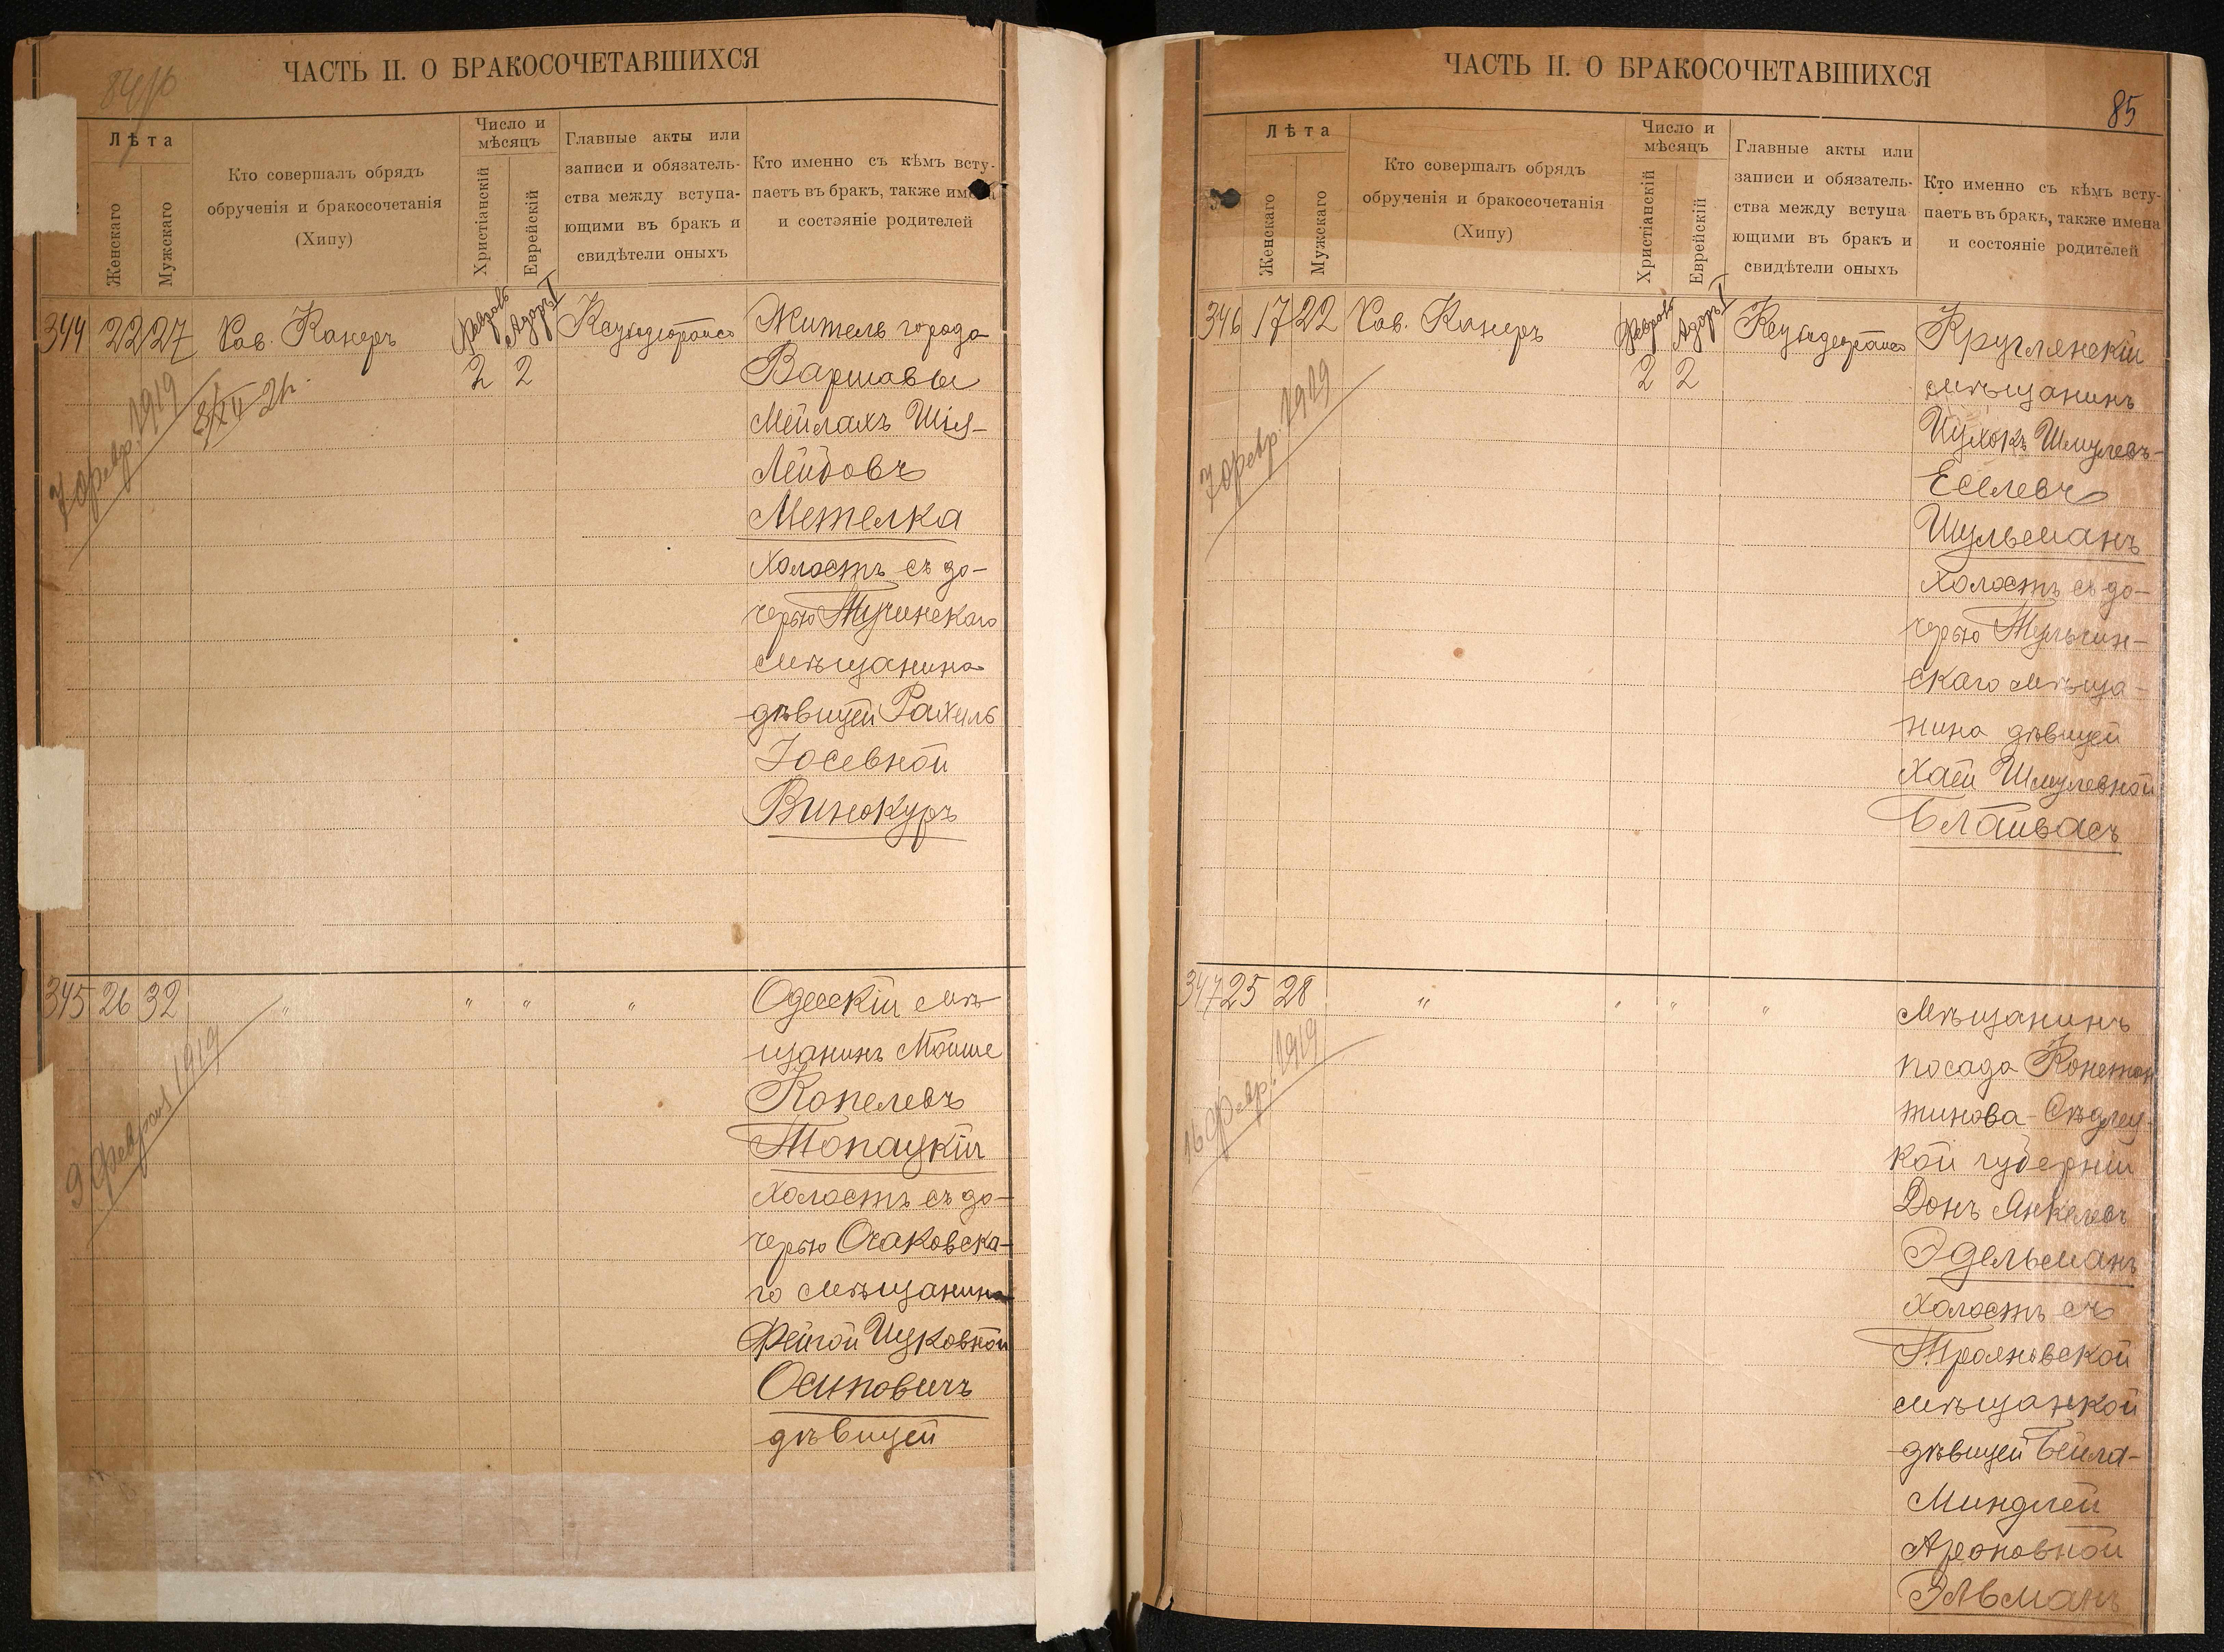 84об
ЧАСТЬ II. О БРАКОСОЧЕТАВШИХСЯ
Лѣта
Женскаго
Мужскаго
Кто совершалъ обрядъ
обрученія и бракосочетанія
(Хипу)
Число и
мѣсяцъ
Христіанскій
Еврейскій
Главные акты или
записи и обязатель-
ства между вступа-
ющими въ бракъ и
свидѣтели оныхъ
Кто именно съ кѣмъ всту-
паетъ въ бракъ, также имена
и состояніе родителей
344
22
27
Кав. Канеръ
Февраль
2
Адоръ I
2
7 февр. 1919
Житель города
Варшавы
Мейлахъ Шія-
Лейбовъ
Метелка
холостъ съ до-
черью Тучинскаго
мѣщанина
дѣвицей Рахиль
Іосевной
Винокуръ
345
26
32
"
"
"
"
9 Февраля 1919
Одесскій мѣ-
щанинъ Мойше
Копелевъ
Топацкій
холостъ съ до-
черью Очаковска-
го мѣщанина
Фейгой Ицковной
Осиповичъ
дѣвицей
ЧАСТЬ II. О БРАКОСОЧЕТАВШИХСЯ
85
Лѣта
Женскаго
Мужскаго
Кто совершалъ обрядъ
обрученія и бракосочетанія
(Хипу)
Число и
мѣсяцъ
Христіанскій
Еврейскій
Главные акты или
записи и обязатель-
ства между вступа
ющими въ бракъ и
свидѣтели оныхъ
Кто именно съ кѣмъ всту-
паетъ въ бракъ, также имена
и состояніе родителей
346
17
22
Кав. Канеръ
Февраль
2
Адоръ I
2
7 февр. 1919
Круглянскій
мѣщанинъ
Ицхокъ Шмулевъ-
Еселевъ
Шульманъ
холостъ съ до-
черью Тульчин-
скаго мѣща-
нина дѣвицей
Хаей Шмулевной
Блайвасъ
347
25
28
"
"
"
"
16 Февр. 1919
мѣщанинъ
посада Констан
тинова-Сѣдлец-
кой губерніи
Донъ Янкелевъ
Эдельманъ
холостъ съ
Трояновской
мѣщанкой
дѣвицей Бейла-
Миндлей
Ароновной
Эльманъ